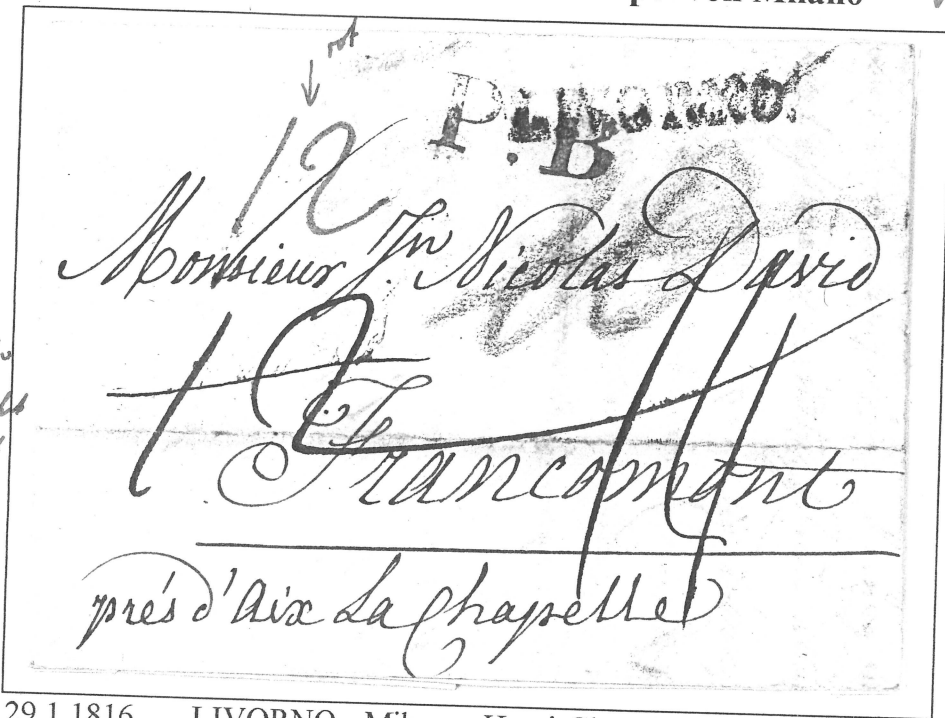 Milano
rot
12
LIVORNO.
P. B
Monsieur Jn Nicolas David
12
Francomont
près d'Aix La Chapelle
29.1.1816 LIVORNO